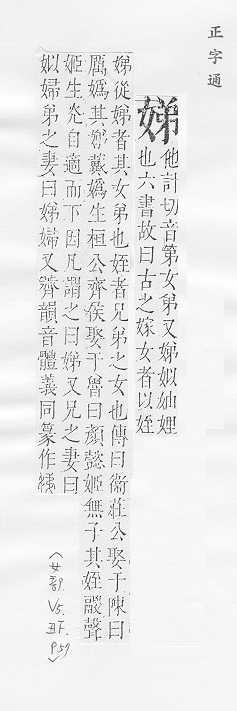 正字通
娣
他計切音第女弟又娣姒妯娌
也六書故曰古之嫁女者以姪
娣從娣者其女弟也姪者兄弟之女也傳曰衞莊公娶于陳曰
厲嬀其娣戴嬀生桓公齊侯娶于魯曰顏懿姬無子其姪鬷聲
姬生光自適而下因凡謂之曰娣又兄之妻曰
姒婦弟之妻曰娣婦又薺韻音體義同篆作
<女部. V5. 丑下. P57>